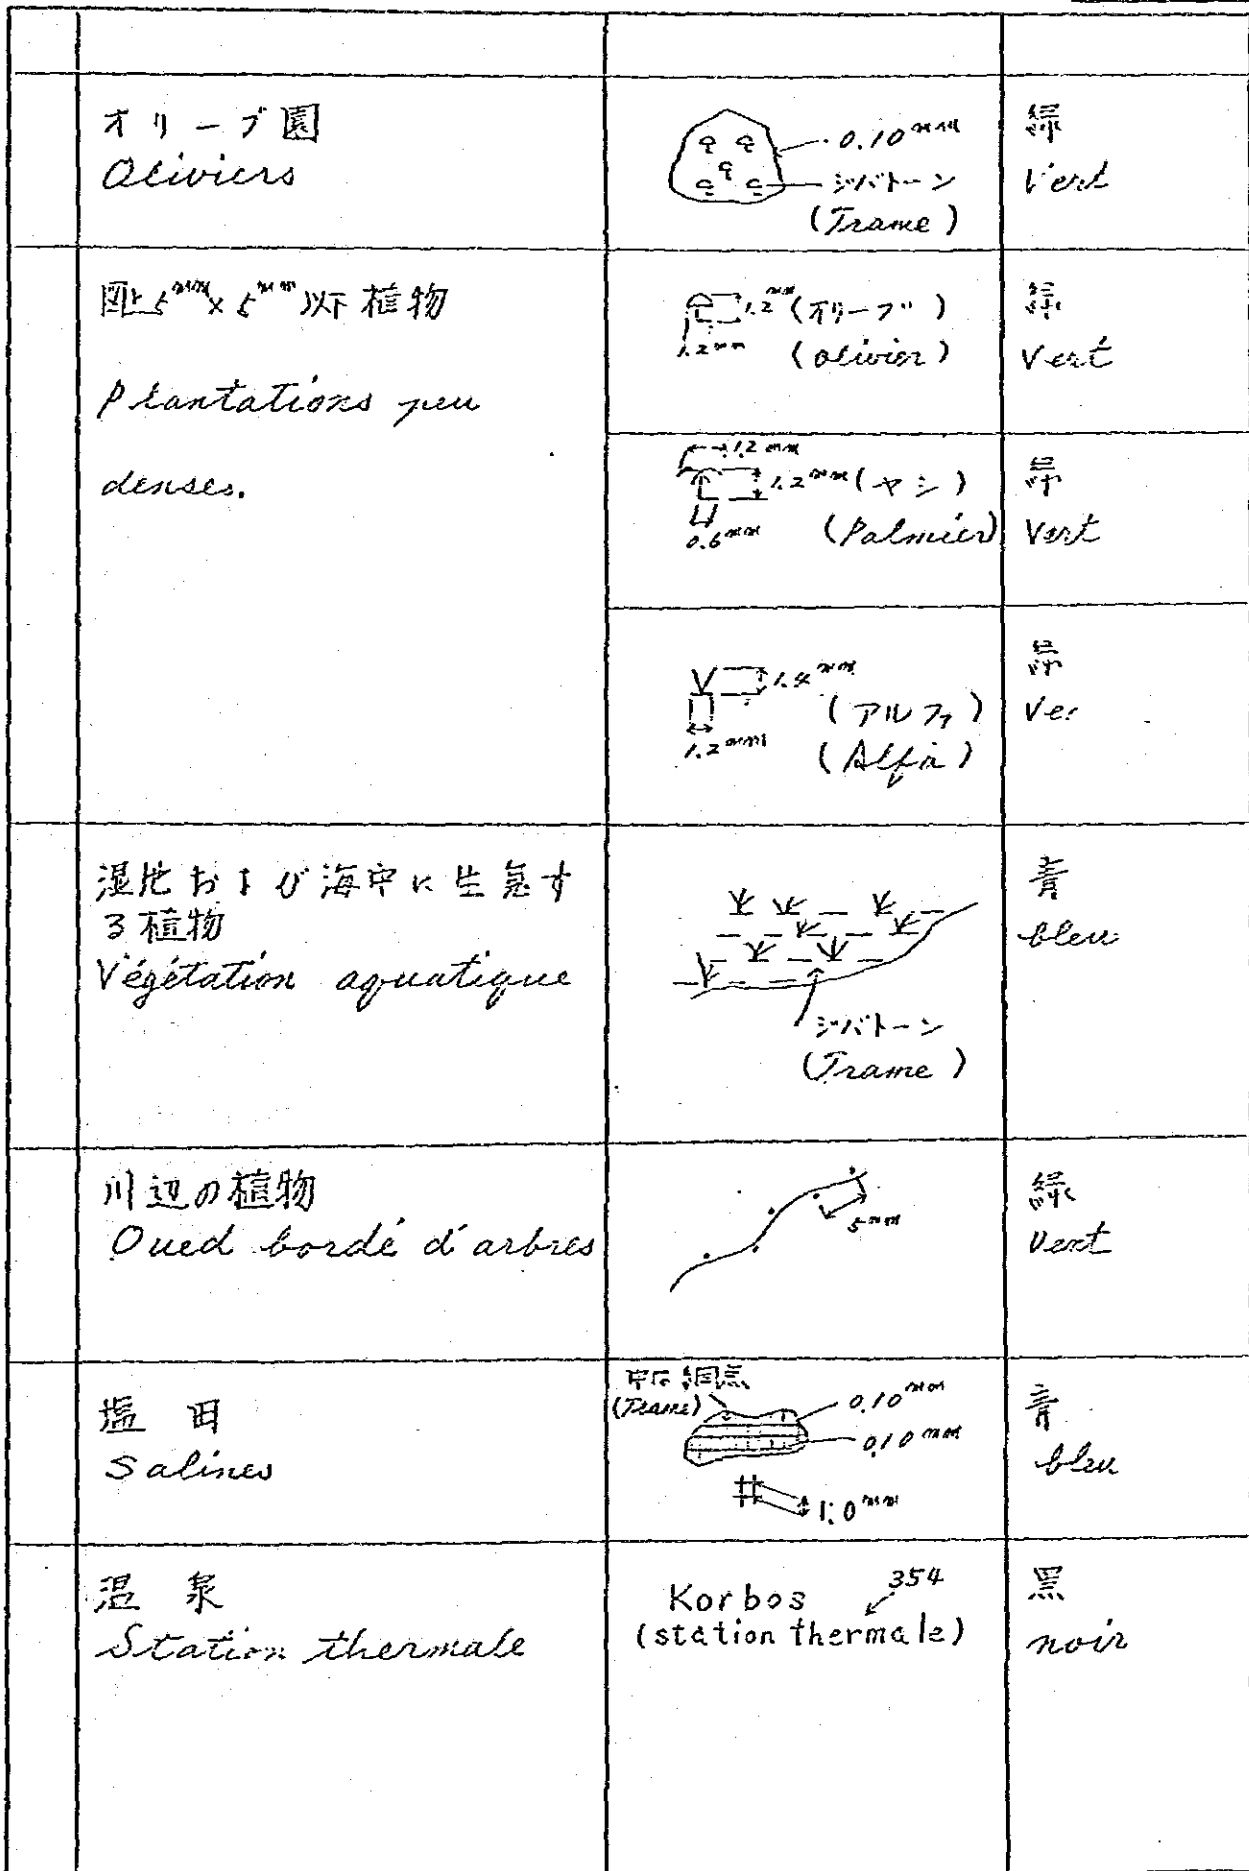 オリーブ園
Oliviers
0.10mm
ジバトーン
(Trame)
緑
Vert
図上5mm×5mm以下植物
Plantations peu
denses.
1.2mm (オリーブ)
1.2mm (olivier)
緑
Vert
1.2mm
1.2mm (ヤシ)
0.6mm (Palmier)
緑
Vert
1.4mm
(アルファ)
1.2mm (Alfa)
緑
Ver
湿地および海中に生息す
る植物
Végétation aquatique
ジバトーン
(Trame)
青
bleu
川辺の植物
Oued bordé d'arbres
5mm
緑
Vert
塩田
Salines
網点
(Trame)
0.10mm
0.10mm
1.0mm
青
bleu
温泉
Station thermale
Korbos 354
(station thermale)
黒
noir